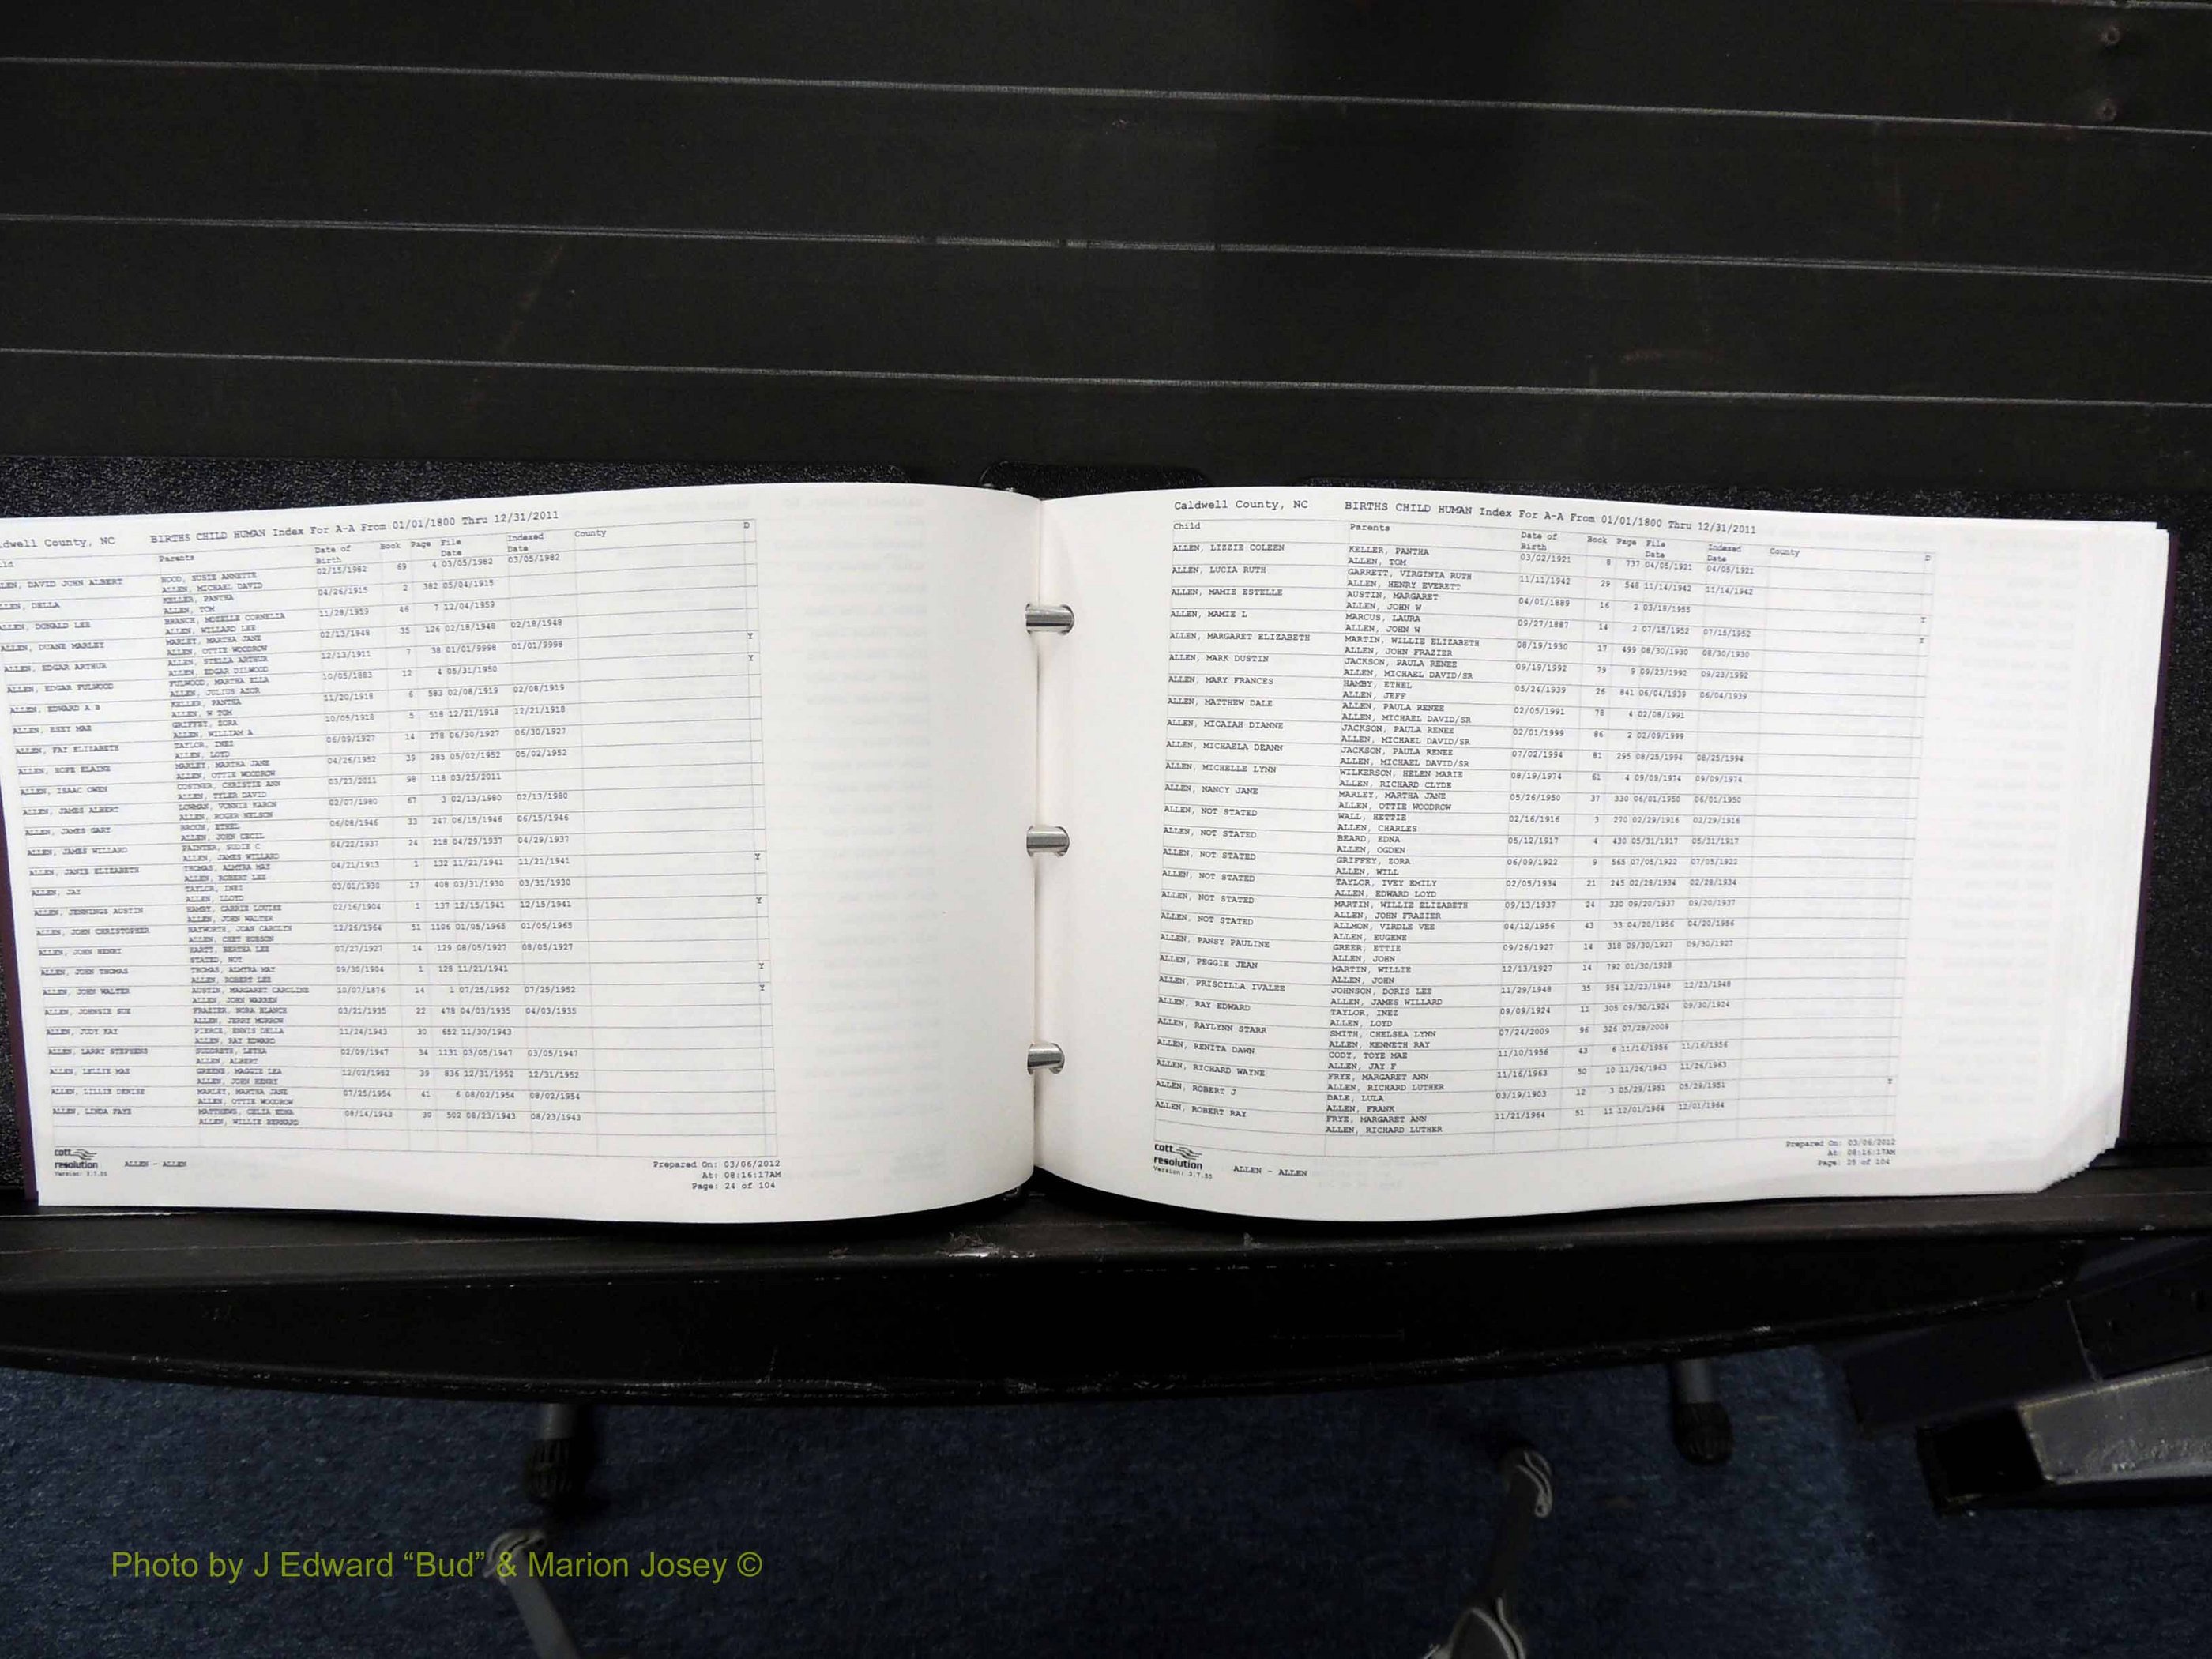 dwell County, NC BIRTHS CHILD HUMAN Index For A-A From 01/01/1800 Thru 12/31/2011
ld Parents Date of Birth Book Page File Date Indexed Date County D
LEN, DAVID JOHN ALBERT HOOD, SUSIE ANNETTE 02/15/1982 69 4 03/05/1982 03/05/1982
ALLEN, MICHAEL DAVID
LEN, DELLA KELLER, PANTHA 04/26/1915 2 382 05/04/1915
ALLEN, TOM
ALLEN, DONALD LEE BRANCH, MOZELLE CORNELIA 11/28/1959 46 7 12/04/1959
ALLEN, WILLARD LEE
ALLEN, DUANE MARLEY MARLEY, MARTHA JANE 02/13/1948 35 126 02/18/1948 02/18/1948
ALLEN, OTTIE WOODROW
ALLEN, EDGAR ARTHUR ALLEN, STELLA ARTHUR 12/13/1911 7 38 01/01/9998 01/01/9998 Y
ALLEN, EDGAR DILWOOD
ALLEN, EDGAR FULWOOD FULWOOD, MARTHA ELLA 10/05/1883 12 4 05/31/1950 Y
ALLEN, JULIUS AZOR
ALLEN, EDWARD A B KELLER, PANTHA 11/20/1918 6 583 02/08/1919 02/08/1919
ALLEN, W TOM
ALLEN, ESEY MAE GRIFFEY, ZORA 10/05/1918 5 518 12/21/1918 12/21/1918
ALLEN, WILLIAM A
ALLEN, FAY ELIZABETH TAYLOR, INEZ 06/09/1927 14 278 06/30/1927 06/30/1927
ALLEN, LOYD
ALLEN, HOPE ELAINE MARLEY, MARTHA JANE 04/26/1952 39 285 05/02/1952 05/02/1952
ALLEN, OTTIE WOODROW
ALLEN, ISAAC OWEN COSTNER, CHRISTIE ANN 03/23/2011 98 118 03/25/2011
ALLEN, TYLER DAVID
ALLEN, JAMES ALBERT LOWMAN, VONNIE KARON 02/07/1980 67 3 02/13/1980 02/13/1980
ALLEN, ROGER NELSON
ALLEN, JAMES GARY BROWN, ETHEL 06/08/1946 33 247 06/15/1946 06/15/1946
ALLEN, JOHN CECIL
ALLEN, JAMES WILLARD PAINTER, SUDIE C 04/22/1937 24 218 04/29/1937 04/29/1937
ALLEN, JAMES WILLARD
ALLEN, JANIE ELIZABETH THOMAS, ALMYRA MAY 04/21/1913 1 132 11/21/1941 11/21/1941 Y
ALLEN, ROBERT LEE
ALLEN, JAY TAYLOR, INEZ 03/01/1930 17 408 03/31/1930 03/31/1930
ALLEN, LLOYD
ALLEN, JENNINGS AUSTIN HAMBY, CARRIE LOUISE 02/16/1904 1 137 12/15/1941 12/15/1941 Y
ALLEN, JOHN WALTER
ALLEN, JOHN CHRISTOPHER HAYWORTH, JOAN CAROLYN 12/26/1964 51 1106 01/05/1965 01/05/1965
ALLEN, CHET ROBSON
ALLEN, JOHN HENRY HARTT, BERTHA LEE 07/27/1927 14 129 08/05/1927 08/05/1927
STATED, NOT
ALLEN, JOHN THOMAS THOMAS, ALMYRA MAY 09/30/1904 1 128 11/21/1941 Y
ALLEN, ROBERT LEE
ALLEN, JOHN WALTER AUSTIN, MARGARET CAROLINE 10/07/1876 14 1 07/25/1952 07/25/1952 Y
ALLEN, JOHN WARREN
ALLEN, JOHNSIE SUE FRAZIER, NORA BLANCH 03/21/1935 22 478 04/03/1935 04/03/1935
ALLEN, JERRY MORROW
ALLEN, JUDY KAY PIERCE, ENNIS DELLA 11/24/1943 30 652 11/30/1943
ALLEN, RAY EDWARD
ALLEN, LARRY STEPHENS SUDDRETH, LETHA 02/09/1947 34 1131 03/05/1947 03/05/1947
ALLEN, ALBERT
ALLEN, LELLIE MAE GREENE, MAGGIE LEA 12/02/1952 39 836 12/31/1952 12/31/1952
ALLEN, JOHN HENRY
ALLEN, LILLIE DENISE MARLEY, MARTHA JANE 07/25/1954 41 6 08/02/1954 08/02/1954
ALLEN, OTTIE WOODROW
ALLEN, LINDA FAYE MATTHEWS, CELIA EDNA 08/14/1943 30 502 08/23/1943 08/23/1943
ALLEN, WILLIE BERNARD
cott
resolution
Version: 3.7.55
ALLEN - ALLEN
Prepared On: 03/06/2012
At: 08:16:17AM
Page: 24 of 104
Caldwell County, NC BIRTHS CHILD HUMAN Index For A-A From 01/01/1800 Thru 12/31/2011
Child Parents Date of Birth Book Page File Date Indexed Date County D
ALLEN, LIZZIE COLEEN KELLER, PANTHA 03/02/1921 8 737 04/05/1921 04/05/1921
ALLEN, TOM
ALLEN, LUCIA RUTH GARRETT, VIRGINIA RUTH 11/11/1942 29 548 11/14/1942 11/14/1942
ALLEN, HENRY EVERETT
ALLEN, MAMIE ESTELLE AUSTIN, MARGARET 04/01/1889 16 2 03/18/1955 Y
ALLEN, JOHN W
ALLEN, MAMIE L MARCUS, LAURA 09/27/1887 14 2 07/15/1952 07/15/1952 Y
ALLEN, JOHN W
ALLEN, MARGARET ELIZABETH MARTIN, WILLIE ELIZABETH 08/19/1930 17 499 08/30/1930 08/30/1930
ALLEN, JOHN FRAZIER
ALLEN, MARK DUSTIN JACKSON, PAULA RENEE 09/19/1992 79 9 09/23/1992 09/23/1992
ALLEN, MICHAEL DAVID/SR
ALLEN, MARY FRANCES HAMBY, ETHEL 05/24/1939 26 841 06/04/1939 06/04/1939
ALLEN, JEFF
ALLEN, MATTHEW DALE ALLEN, PAULA RENEE 02/05/1991 78 4 02/08/1991
ALLEN, MICHAEL DAVID/SR
ALLEN, MICAIAH DIANNE JACKSON, PAULA RENEE 02/01/1999 86 2 02/09/1999
ALLEN, MICHAEL DAVID/SR
ALLEN, MICHAELA DEANN JACKSON, PAULA RENEE 07/02/1994 81 295 08/25/1994 08/25/1994
ALLEN, MICHAEL DAVID/SR
ALLEN, MICHELLE LYNN WILKERSON, HELEN MARIE 08/19/1974 61 4 09/09/1974 09/09/1974
ALLEN, RICHARD CLYDE
ALLEN, NANCY JANE MARLEY, MARTHA JANE 05/26/1950 37 330 06/01/1950 06/01/1950
ALLEN, OTTIE WOODROW
ALLEN, NOT STATED WALL, HETTIE 02/16/1916 3 270 02/29/1916 02/29/1916
ALLEN, CHARLES
ALLEN, NOT STATED BEARD, EDNA 05/12/1917 4 430 05/31/1917 05/31/1917
ALLEN, OGDEN
ALLEN, NOT STATED GRIFFEY, ZORA 06/09/1922 9 565 07/05/1922 07/05/1922
ALLEN, WILL
ALLEN, NOT STATED TAYLOR, IVEY EMILY 02/05/1934 21 245 02/28/1934 02/28/1934
ALLEN, EDWARD LOYD
ALLEN, NOT STATED MARTIN, WILLIE ELIZABETH 09/13/1937 24 330 09/20/1937 09/20/1937
ALLEN, JOHN FRAZIER
ALLEN, NOT STATED ALLMON, VIRDLE VEE 04/12/1956 43 33 04/20/1956 04/20/1956
ALLEN, EUGENE
ALLEN, PANSY PAULINE GREER, ETTIE 09/26/1927 14 318 09/30/1927 09/30/1927
ALLEN, JOHN
ALLEN, PEGGIE JEAN MARTIN, WILLIE 12/13/1927 14 792 01/30/1928
ALLEN, JOHN
ALLEN, PRISCILLA IVALEE JOHNSON, DORIS LEE 11/29/1948 35 954 12/23/1948 12/23/1948
ALLEN, JAMES WILLARD
ALLEN, RAY EDWARD TAYLOR, INEZ 09/09/1924 11 305 09/30/1924 09/30/1924
ALLEN, LOYD
ALLEN, RAYLYNN STARR SMITH, CHELSEA LYNN 07/24/2009 96 326 07/28/2009
ALLEN, KENNETH RAY
ALLEN, RENITA DAWN CODY, TOYE MAE 11/10/1956 43 6 11/16/1956 11/16/1956
ALLEN, JAY F
ALLEN, RICHARD WAYNE FRYE, MARGARET ANN 11/16/1963 50 10 11/26/1963 11/26/1963
ALLEN, RICHARD LUTHER
ALLEN, ROBERT J DALE, LULA 03/19/1903 12 3 05/29/1951 05/29/1951 Y
ALLEN, FRANK
ALLEN, ROBERT RAY FRYE, MARGARET ANN 11/21/1964 51 11 12/01/1964 12/01/1964
ALLEN, RICHARD LUTHER
cott
resolution
Version: 3.7.55
ALLEN - ALLEN
Prepared On: 03/06/2012
At: 08:16:17AM
Page: 25 of 104
Photo by J Edward “Bud” & Marion Josey ©